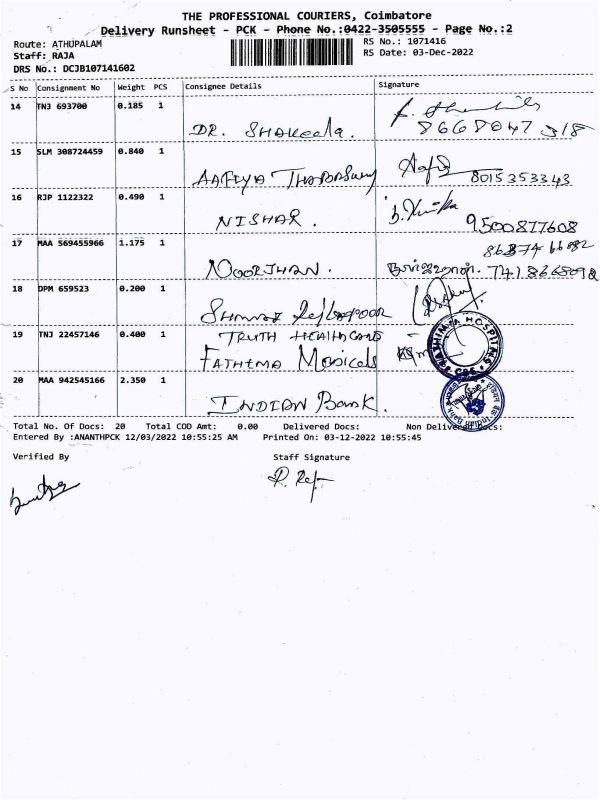 THE PROFESSIONAL COURIERS, Coimbatore
Delivery Runsheet - PCK - Phone No.:0422-3505555 - Page No.:2
Route: ATHUPALAM
RS No.: 1071416
Staff: RAJA
RS Date: 03-Dec-2022
DRS No.: DCJB107141602
S No Consignment No Weight PCS Consignee Details Signature
14 TNJ 693700 0.185 1
DR. Shakeela.
15 SLM 308724459 0.840 1
8015353343
16 RJP 1122322 0.490 1
NISHAR.
9500877608
17 MAA 569455966 1.175 1
NOORJHAN.
18 DPM 659523 0.200 1
19 TNJ 22457146 0.400 1
TRUTH HEALTHCARE
FATHIMA Medicals
HOSPITAL
CBE
20 MAA 942545166 2.350 1
INDIAN Bank.
Total No. Of Docs: 20 Total COD Amt: 0.00 Delivered Docs: Non Delivered Docs:
Entered By :ANANTHPCK 12/03/2022 10:55:25 AM Printed On: 03-12-2022 10:55:45
Verified By Staff Signature